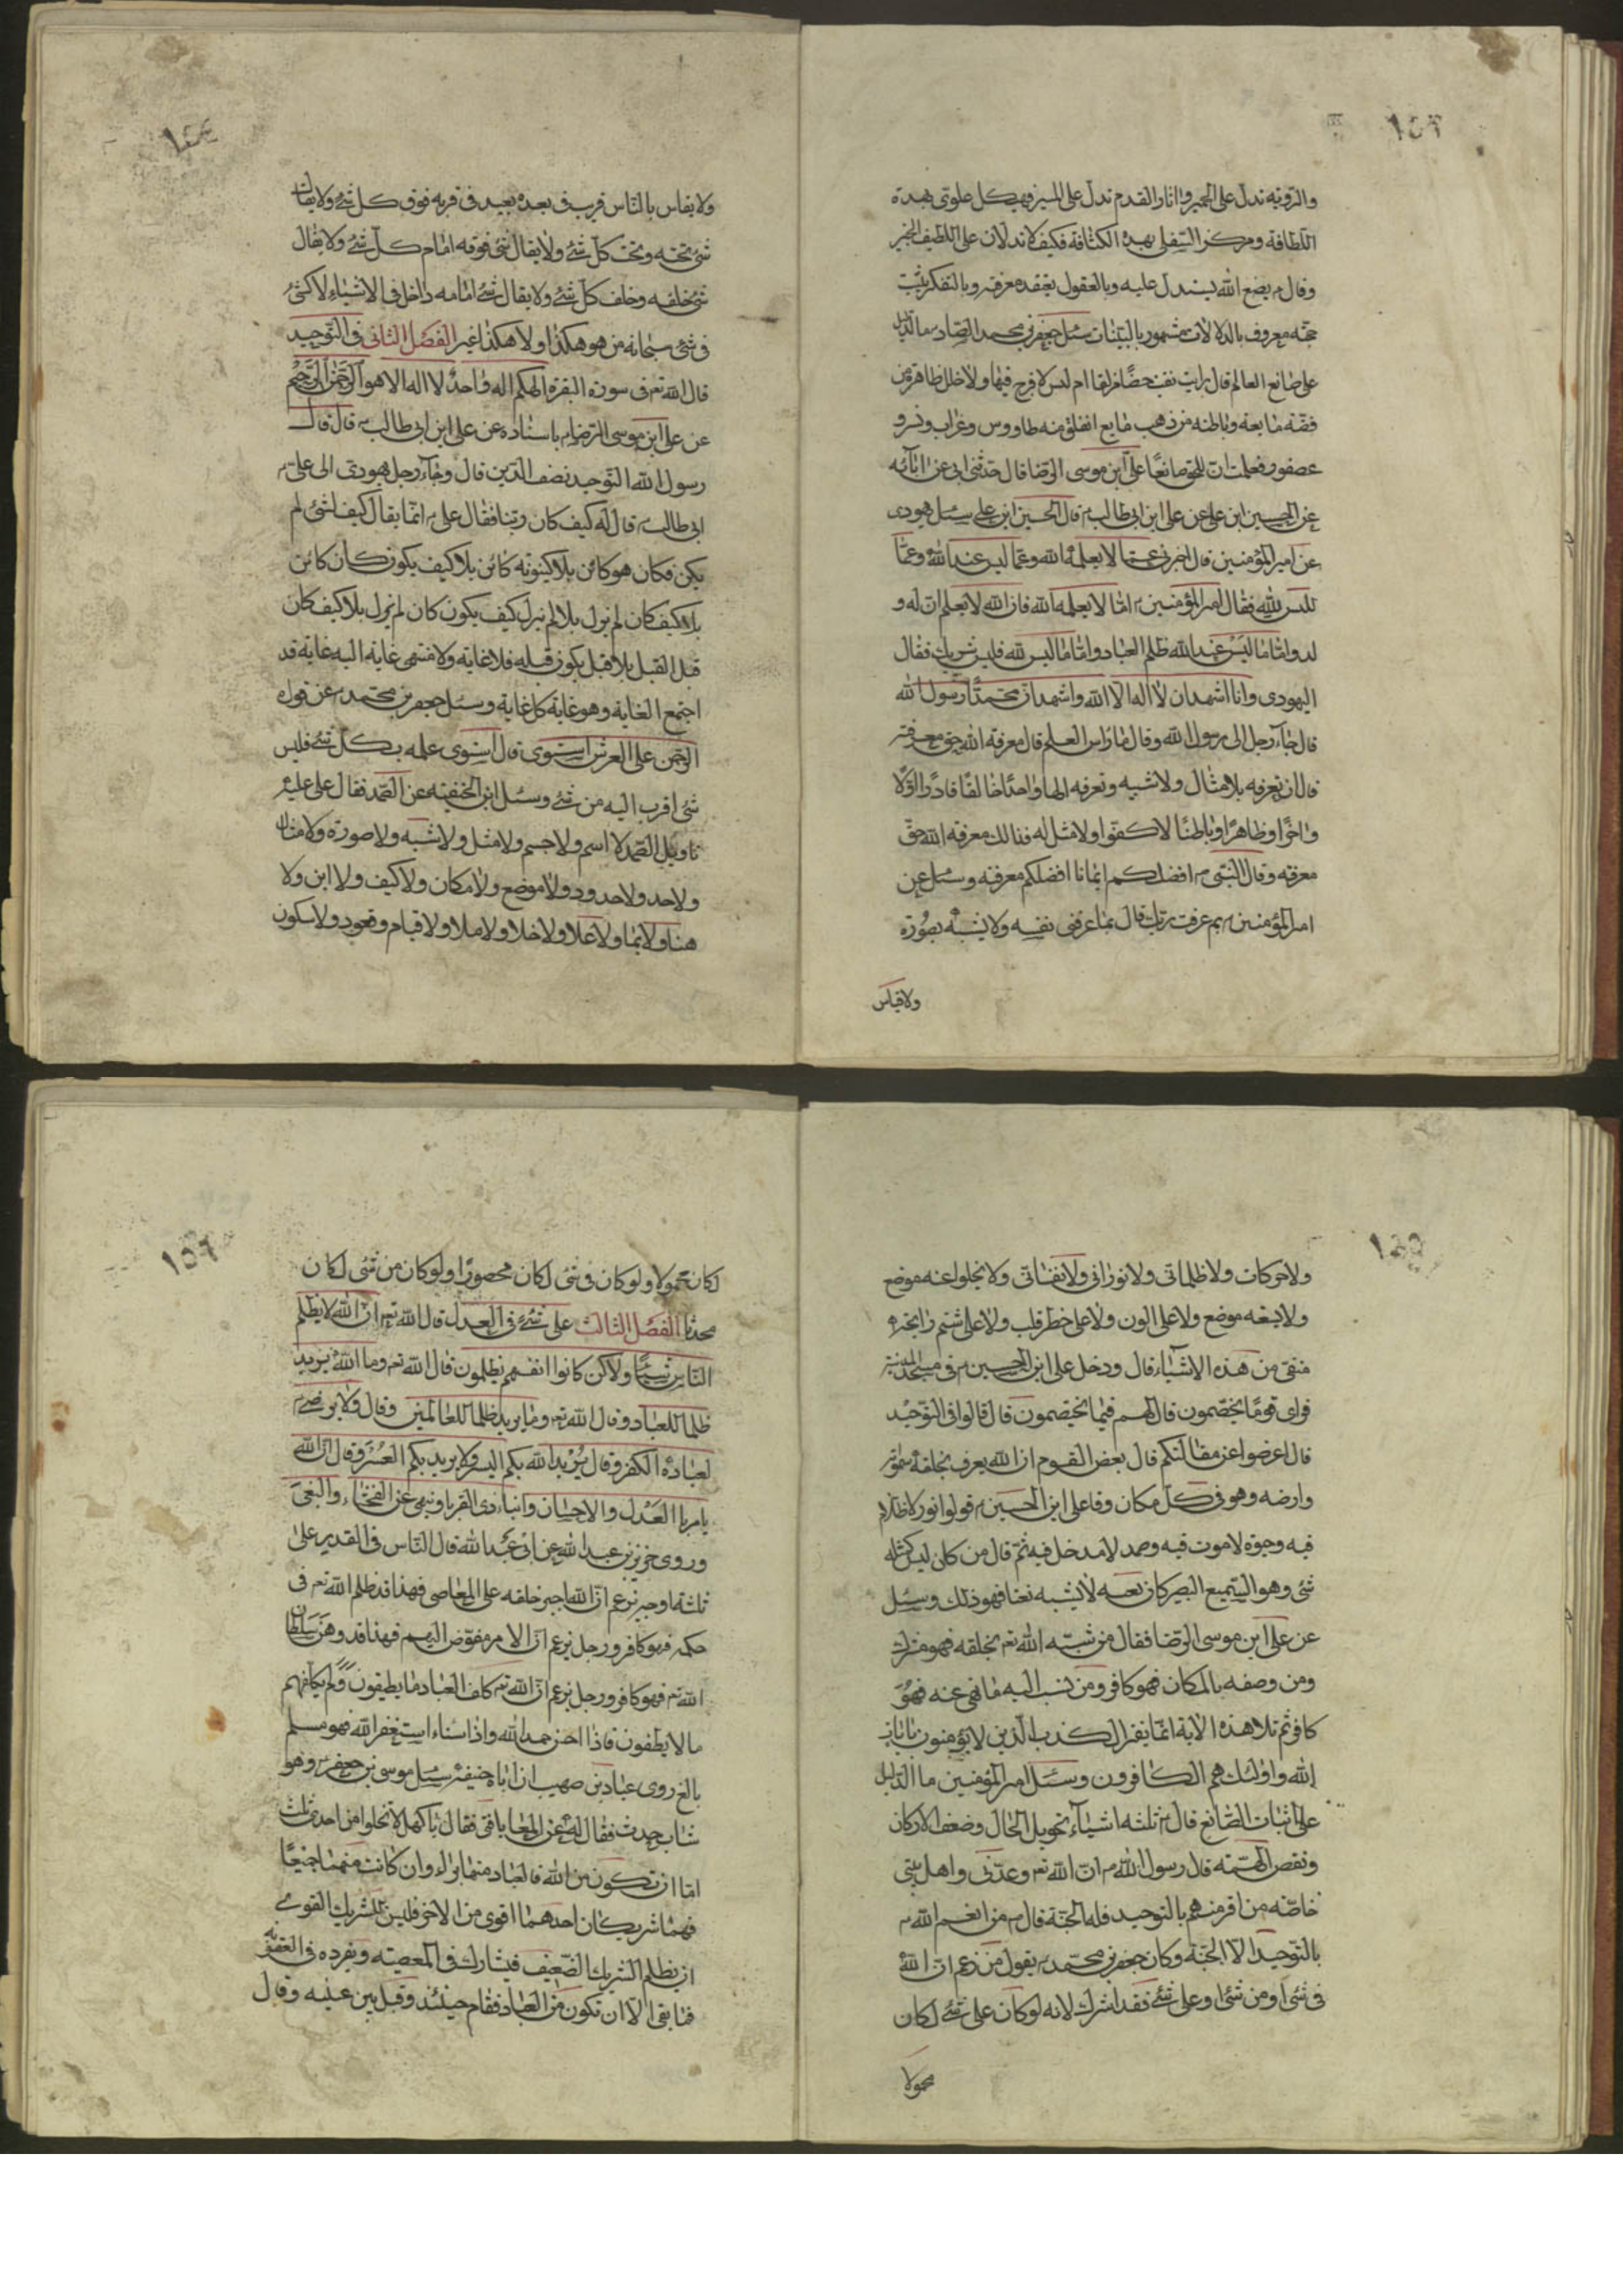 ١٥٣
والروثه تدل على الحمير واثار القدم تدل على المسير فهيكل علوى بهذه
اللطافة ومركز السفلى بهذه الكثافة فكيف لا تدلان على اللطيف الخبير
وقال ع بصنع الله يستدل عليه وبالعقول يعتقد معرفته وبالتفكر يثبت
حجته معروف بالدلالات مشهور بالبينات سئل جعفر بن محمد الصادق ما الدليل
على صانع العالم قال رايت حصنا مزلقا املس لا فرج فيها ولا خلل ظاهره من
فضة مايعة وباطنه من ذهب مايع انفلق منه طاووس وغراب ونسر و
عصفور فعلمت ان للخلق صانعا على ابن موسى الرضا قال حدثنى ابى عن ابائه
عن الحسين ابن على عن على ابن ابى طالب ع قال الحسين ابن على سئل يهودى
عن امير المؤمنين قال اخبرنى عما لا يعلمه الله وعما ليس عند الله وعما
ليس لله فقال امير المؤمنين ع اما لا يعلمه الله فان الله لا يعلم ان له و
لد واما ما ليس عند الله ظلم العباد واما ما ليس لله فليس شريك فقال
اليهودى وانا اشهد ان لا اله الا الله واشهد ان محمدا رسول الله
قال جاء رجل الى رسول الله وقال ما راس العلم قال معرفة الله حق معرفته
قال ان تعرفه بلا مثال ولا شبيه وتعرفه الها واحدا خالقا قادرا اولا
واخرا وظاهرا وباطنا لا كفوا ولا مثل له فذالك معرفة الله حق
معرفته وقال النبى ص افضلكم ايمانا افضلكم معرفه وسئل عن
امير المؤمنين ع بم عرفت ربك قال بما عرفنى نفسه ولا يشبه بصورة
ولا قياس
١٥٤
ولا يقاس بالناس قريب فى بعده بعيد فى قربه فوق كل شئ ولا يقال
شئ تحته وتحت كل شئ ولا يقال شئ فوقه امام كل شئ ولا يقال
شئ خلفه وخلف كل شئ ولا يقال شئ امامه داخل فى الاشياء لا كشئ
فى شئ سبحانه من هو هكذا ولا هكذا غيره الفصل الثانى فى التوحيد
قال الله تع فى سورة البقرة الهكم اله واحد لا اله الا هو الرحمن الرحيم
عن على ابن موسى الرضا ع باسناده عن على ابن ابى طالب ع قال قال
رسول الله التوحيد نصف الدين قال وجاء رجل يهودى الى على بن
ابى طالب ع قال له كيف كان ربنا فقال على ع انما يقال كيف لشئ لم
يكن فكان هو كائن بلا كينونه كائن بلا كيف يكون كان كائن
بلا كيف كان لم يزل بلا لم يزل كيف يكون كان لم يزل بلا كيف كان
قبل القبل بلا قبل يكون قبله فلا غاية ولا منتهى غاية اليه غاية قد
اجتمع الغاية وهو غاية كل غاية وسئل جعفر بن محمد ع عن قوله
الرحمن على العرش استوى قال استوى علمه بكل شئ فليس
شئ اقرب اليه من شئ وسئل ابن الحنفيه عن الصمد فقال على عليه
تاويل الصمد لا اسم ولا جسم ولا مثل ولا شبه ولا صورة ولا مثال
ولا حد ولا حدود ولا موضع ولا مكان ولا كيف ولا اين ولا
هنا ولا ولا علا ولا خلا ولا ملا ولا قيام وقعود ولا سكون
١٥٥
ولا حركات ولا ظلمانى ولا نورانى ولا نفسانى ولا يخلوا عنه موضع
ولا يسعه موضع ولا على الون ولا على خطر قلب ولا على شم رايحة
منفى من هذه الاشياء قال ودخل على ابن الحسين ع فى مسجد المدينة
فراى قوما يختصمون قال لهم فيما يختصمون قال قالوا فى التوحيد
قال اعرضوا عن مقالتكم قال بعض القوم ان الله يعرف بخلقه سمواته
وارضه وهو فى كل مكان وقا على ابن الحسين ع قولوا نور لا ظلام
فيه وحيوة لا موت فيه وصمد لا مدخل فيه ثم قال من كان ليس كمثله
شئ وهو السميع البصير كان نعته لا يشبه نعتا فهو ذلك وسئل
عن على ابن موسى الرضا فقال من شبه الله تع بخلقه فهو مشرك
ومن وصفه بالمكان فهو كافر ومن نسب اليه ما نهى عنه فهو
كافر ثم تلا هذه الاية انما يفترى الكذب الذين لا يؤمنون بايات
الله واولئك هم الكافرون وسئل امير المؤمنين ما الدليل
على اثبات الصانع قال ع ثلثه اشياء تحويل الحال وضعف الاركان
ونقض الهمة قال رسول الله ص ان الله تع وعدنى واهل بيتى
خاصه من اقر منهم بالتوحيد فله الجنة قال ع من انعم الله ع
بالتوحيد الا الجنة وكان جعفر بن محمد ع يقول من زعم ان الله
فى شئ او من شئ او على شئ فقد اشرك لانه لو كان على شئ لكان
محمولا
١٥٦
لكان محمولا ولو كان فى شئ لكان محصورا ولو كان من شئ لكان
محدثا الفصل الثالث على شئ فى العدل قال الله تع ان الله لا يظلم
الناس شيئا ولاكن كانوا انفسهم يظلمون قال الله تع وما الله يريد
ظلما للعباد وقال الله تع وما يريد ظلما للعالمين وقال ولا يرضى
لعباده الكفر وقال يريد الله بكم اليسر ولا يريد بكم العسر وقال ان الله
يامر بالعدل والاحسان وايتاء ذى القربا وينهى عن الفحشاء والبغى
وروى حريز بن عبد الله عن ابى عبد الله قال الناس فى القدير على
ثلثة اوجه يزعم ان الله اجبر خلقه على المعاصى فهذا قد ظلم الله تع فى
حكمه فهو كافر ورجل يزعم ان الامر مفوض اليهم فهذا قد وهن سلطان
الله تع فهو كافر ورجل يزعم ان الله تع كلف العباد ما يطيقون ولم يكلفهم
ما لا يطقون فاذا احسن حمد الله واذا اساء استغفر الله فهو مسلم
بالغ روى عباد بن صهيب ان ابا حنيفة سئل موسى بن جعفر ع وهو
شاب حدث فقال له عن المعاصى فقال يا كهل لا تخلوا من احدى ثلث
اما ان تكون من الله فالعباد منها براء وان كانت منهما جميعا
فهما شريكان احدهما اقوى من الاخر فليس للشريك القوى
ان يظلم الشريك الضعيف فيشارك فى المعصيه ويفرده فى العقوبة
فما بقى الا ان تكون من العباد فقام حينئذ وقبل بين عينيه وقال